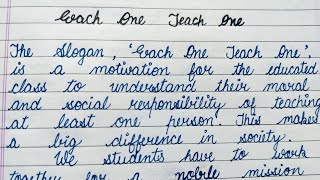 Each One Teach One
The Slogan, 'Each One Teach One',
is a motivation for the educated
class to understand their moral
and social responsibility of teaching
at least one person. This makes
a big difference in society.
We students have to work
together for a noble mission